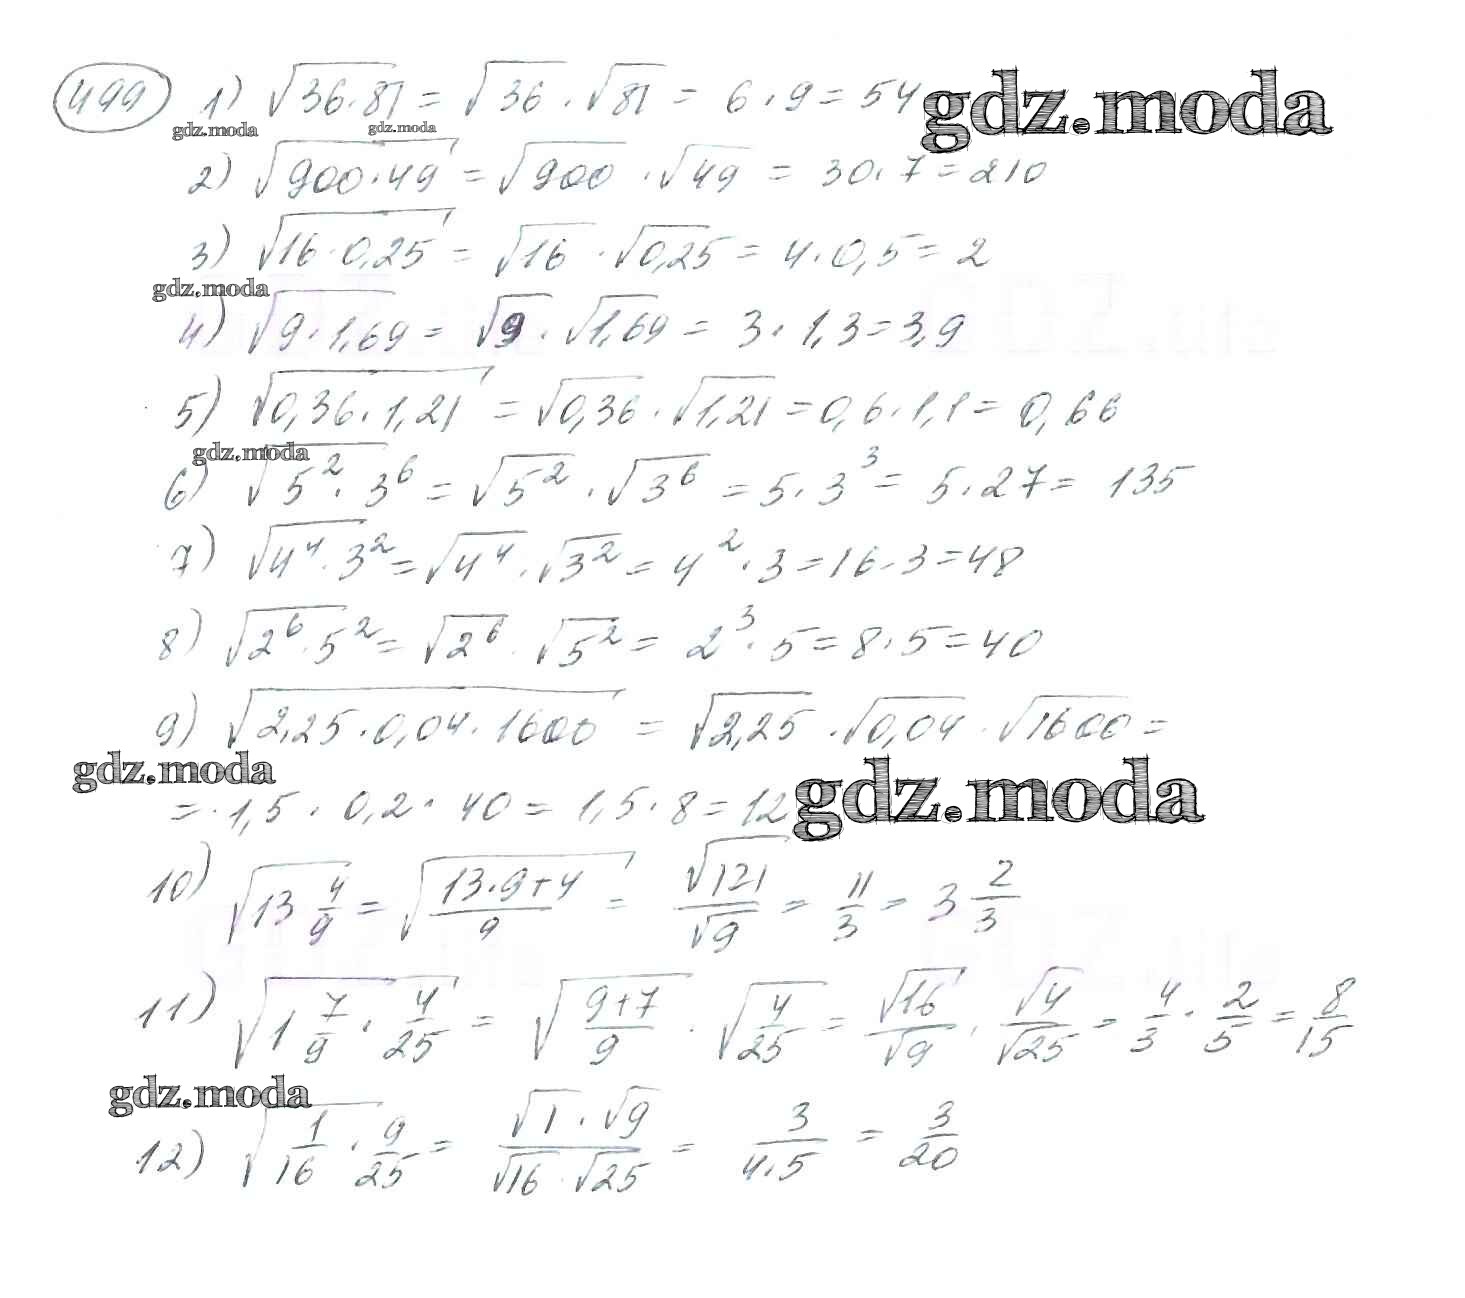 499 1) √(36·81) = √36 · √81 = 6·9 = 54 gdz.moda
gdz.moda gdz.moda
2) √(900·49) = √900 · √49 = 30·7 = 210
3) √(16·0,25) = √16 · √0,25 = 4·0,5 = 2
gdz.moda
4) √(9·1,69) = √9 · √1,69 = 3·1,3 = 3,9
5) √(0,36·1,21) = √0,36 · √1,21 = 0,6·1,1 = 0,66
gdz.moda
6) √(5²·3⁶) = √5² · √3⁶ = 5·3³ = 5·27 = 135
7) √(4⁴·3²) = √4⁴ · √3² = 4²·3 = 16·3 = 48
8) √(2⁶·5²) = √2⁶ · √5² = 2³·5 = 8·5 = 40
9) √(2,25·0,04·1600) = √2,25 · √0,04 · √1600 =
gdz.moda gdz.moda
= 1,5 · 0,2 · 40 = 1,5·8 = 12
10) √(13 4/9) = √((13·9+4)/9) = √121/√9 = 11/3 = 3 2/3
11) √(1 7/9 · 4/25) = √((9+7)/9) · √(4/25) = √16/√9 · √4/√25 = 4/3 · 2/5 = 8/15
gdz.moda
12) √(1/16 · 9/25) = (√1 · √9)/(√16 · √25) = 3/(4·5) = 3/20